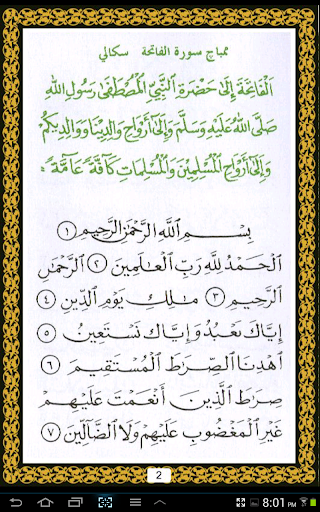 ممباچ سورة الفاتحة سكالي
اَلْفَاتِحَةَ إِلَىٰ حَضْرَةِ النَّبِيِّ الْمُصْطَفَىٰ رَسُولِ اللهِ
صَلَّى اللهُ عَلَيْهِ وَسَلَّمَ وَإِلَىٰ أَرْوَاحِ وَالِدِيْنَا وَوَالِدِيكُمْ
وَإِلَىٰ أَرْوَاحِ الْمُسْلِمِيْنَ وَالْمُسْلِمَاتِ كَآفَّةً عَآمَّةً :
بِسْمِ ٱللَّهِ ٱلرَّحْمَٰنِ ٱلرَّحِيمِ ١
ٱلْحَمْدُ لِلَّهِ رَبِّ ٱلْعَٰلَمِينَ ٢ ٱلرَّحْمَٰنِ
ٱلرَّحِيمِ ٣ مَٰلِكِ يَوْمِ ٱلدِّينِ ٤
إِيَّاكَ نَعْبُدُ وَإِيَّاكَ نَسْتَعِينُ ٥
ٱهْدِنَا ٱلصِّرَٰطَ ٱلْمُسْتَقِيمَ ٦
صِرَٰطَ ٱلَّذِينَ أَنْعَمْتَ عَلَيْهِمْ
غَيْرِ ٱلْمَغْضُوبِ عَلَيْهِمْ وَلَا ٱلضَّآلِّينَ ٧
2
8:01 PM